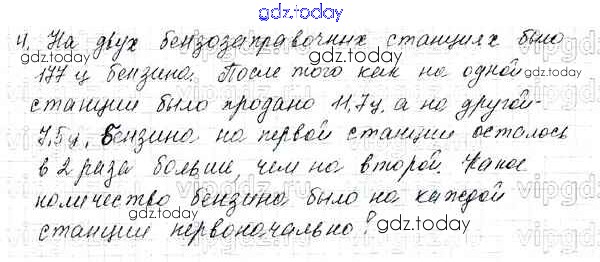 gdz.today
4. На двух бензозаправочных станциях было
gdz.today
177 ц бензина. После того как на одной
станции было продано 11,7ц, а на другой-
7,5ц, бензина на первой станции осталось
в 2 раза больше, чем на второй. Какое
количество бензина было на каждой
gdz.today
станции первоначально?
gdz.today